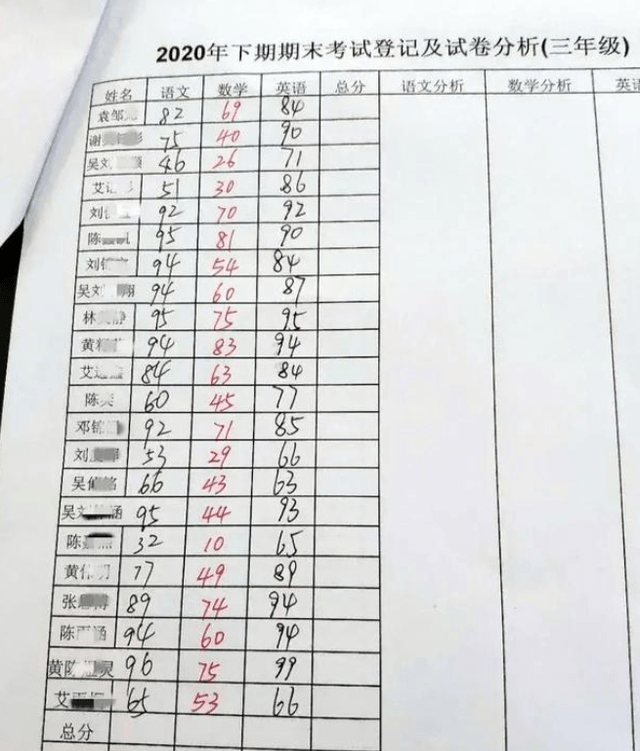 2020年下期期末考试登记及试卷分析(三年级)
姓名 语文 数学 英语 总分 语文分析 数学分析 英语
袁邹 82 69 84
谢 75 40 90
吴刘 46 26 71
艾 51 30 86
刘 92 70 92
陈 95 81 90
刘 94 54 84
吴刘 翔 94 60 87
林 静 95 75 95
黄 94 83 94
艾 84 63 84
陈 60 45 77
邓锦 92 71 85
刘 53 29 66
吴 铭 66 43 63
吴刘 涵 95 44 93
陈 杰 32 10 65
黄 明 77 49 89
张 89 74 94
陈 涵 94 60 94
黄陈 灵 96 75 99
艾 65 53 66
总分